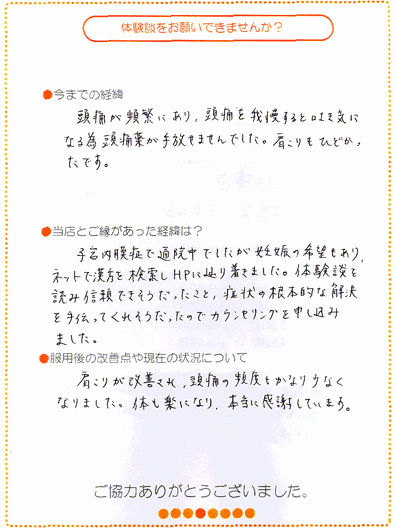 体験談をお願いできませんか？
●今までの経緯
頭痛が頻繁にあり、頭痛を我慢すると吐き気に
なる為頭痛薬が手放せませんでした。肩こりもひどかっ
たです。
●当店とご縁があった経緯は？
子宮内膜症で通院中でしたが妊娠の希望もあり、
ネットで漢方を検索しHPに辿り着きました。体験談を
読み信頼できそうだったこと、症状の根本的な解決
を手伝ってくれそうだったのでカウンセリングを申し込み
ました。
●服用後の改善点や現在の状況について
肩こりが改善され、頭痛の頻度もかなり少なく
なりました。体も楽になり、本当に感謝しています。
ご協力ありがとうございました。